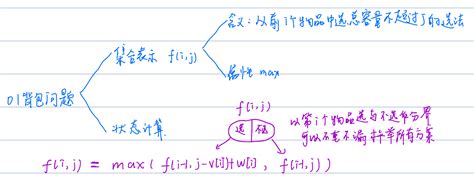 含义：从前i个物品中选总容量不超过j的选法
集合表示 f(i,j)
属性max
01背包问题
f(i,j)
状态计算
选
以第i个物品选与不选作分界
可以不重不漏
所有方案
f(i,j) = max( f(i-1, j-v[i])+w[i] , f(i-1,j) )